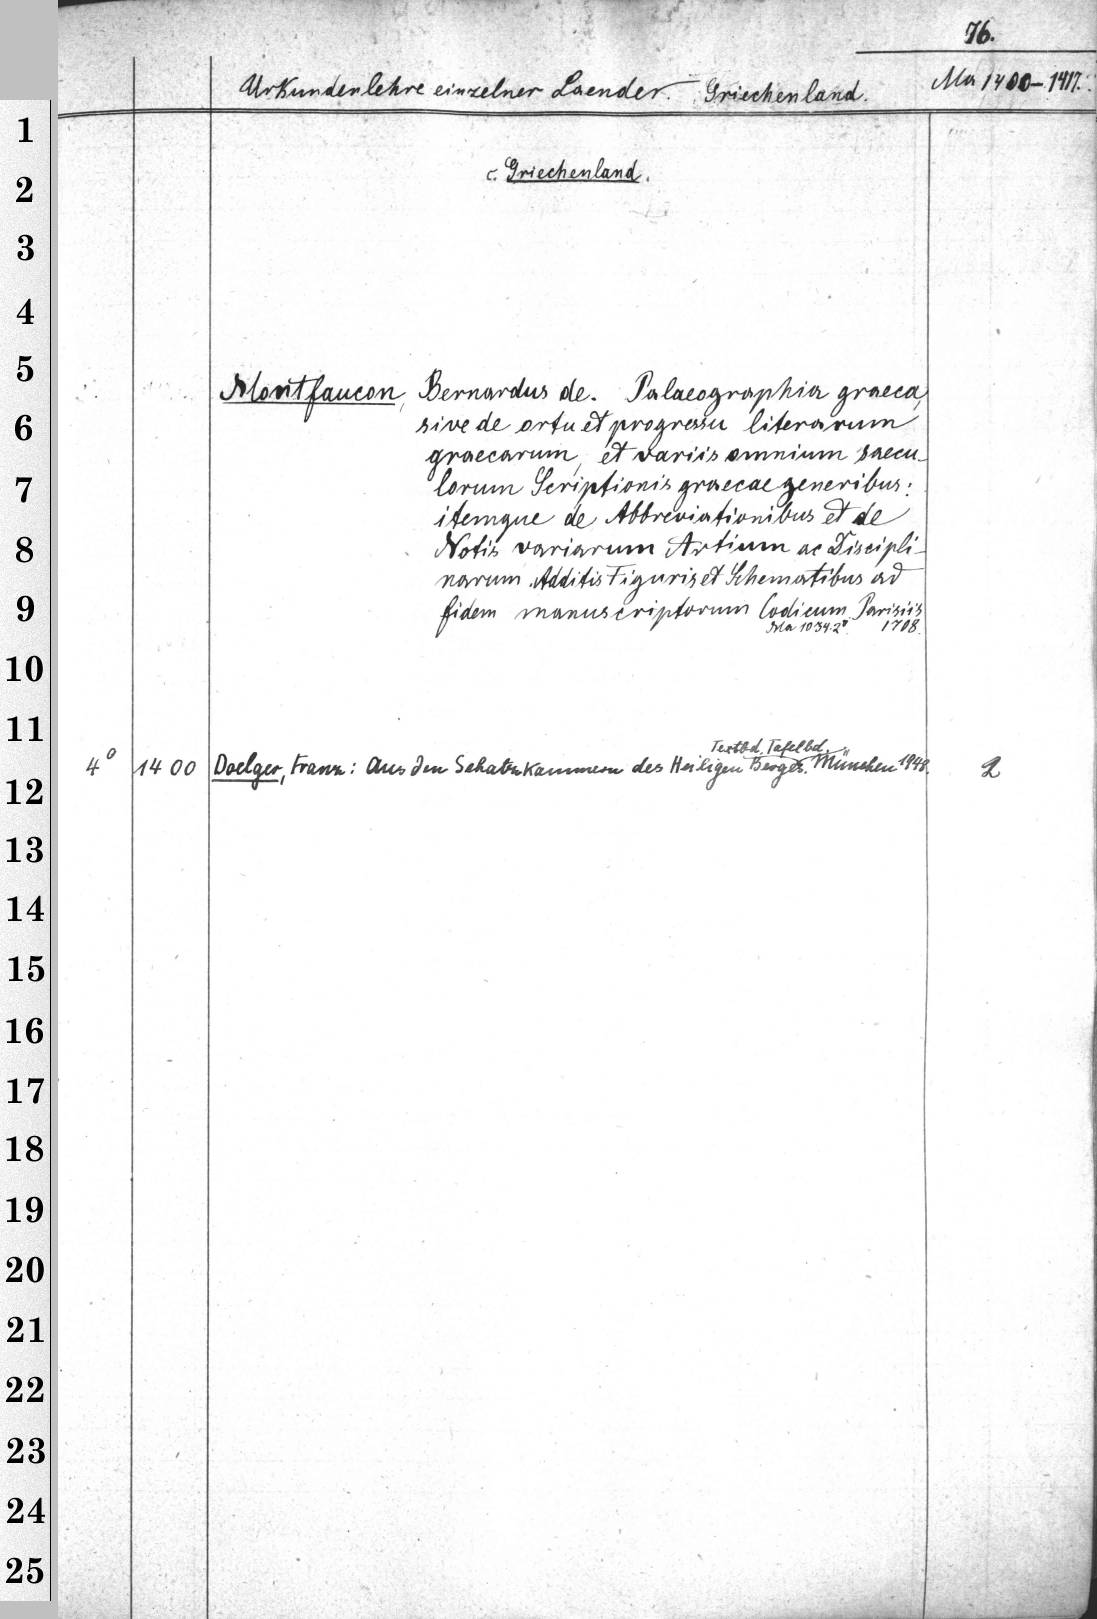 76.
Urkundenlehre einzelner Laender. Griechenland. Ma 1400-1417.
c. Griechenland.
Montfaucon, Bernardus de. Palaeographia graeca,
sive de ortu et progressu literarum
graecarum, et variis omnium saecu-
lorum Scriptionis graecae generibus:
itemque de Abbreviationibus et de
Notis variarum Artium ac Discipli-
narum Additis Figuris et Schematibus ad
fidem manuscriptorum Codicum Parisiis
Ma 1034.2° 1708.
Textbd. Tafelbd.
4° 1400 Doelger, Franz: Aus den Schatzkammern des Heiligen Berges. München 1948. 2
1
2
3
4
5
6
7
8
9
10
11
12
13
14
15
16
17
18
19
20
21
22
23
24
25